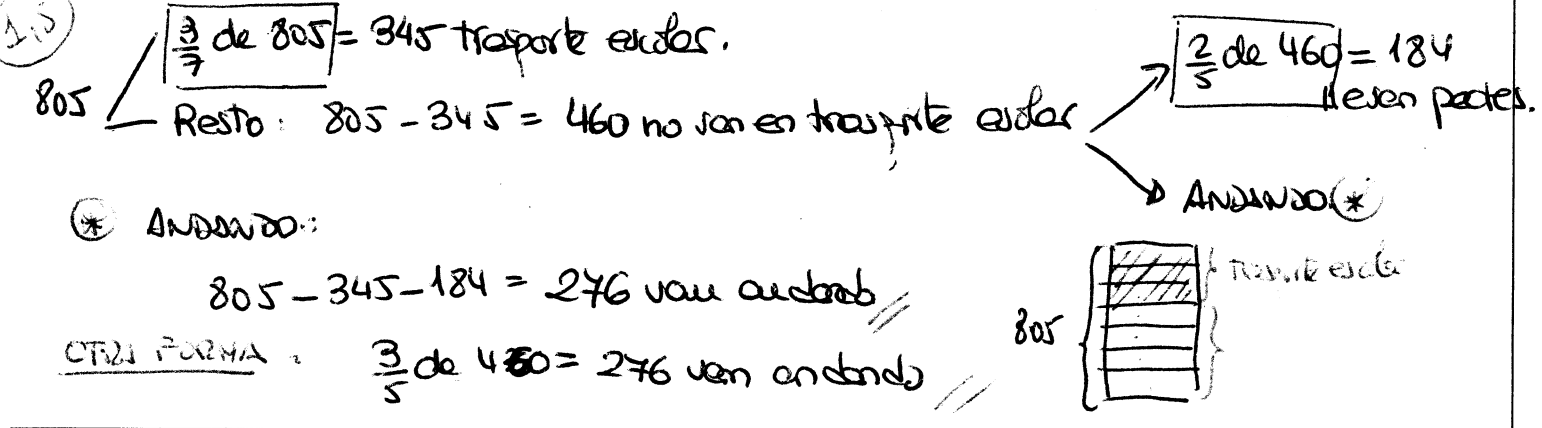 1,5
3/7 de 805 = 345 trasporte escolar.
805
Resto: 805 - 345 = 460 no van en trasporte escolar
2/5 de 460 = 184
llevan padres.
ANDANDO *
* ANDANDO:
805 - 345 - 184 = 276 van andando
OTRA FORMA: 3/5 de 460 = 276 van andando
805